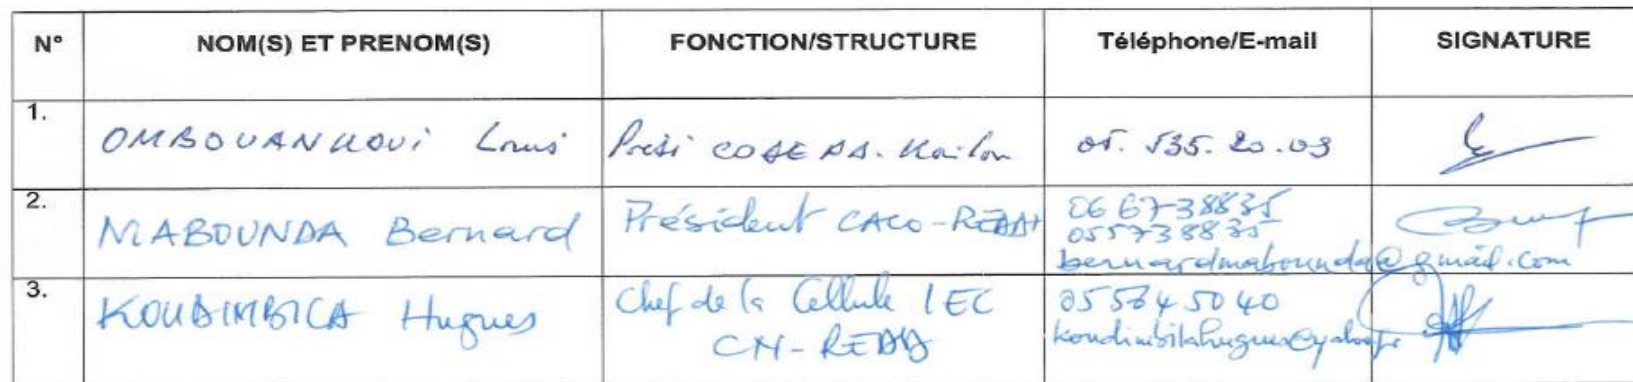 N° NOM(S) ET PRENOM(S) FONCTION/STRUCTURE Téléphone/E-mail SIGNATURE
1. OMBOUANKOUi Louis COGEPA. 05. 535. 20.03
2. MABOUNDA Bernard Président CACO-REDD+ 06 6738835
055738835
bernardmabounda@gmail.com
3. KOUDIMBILA Hugues Chef de la Cellule IEC
CN-REDD